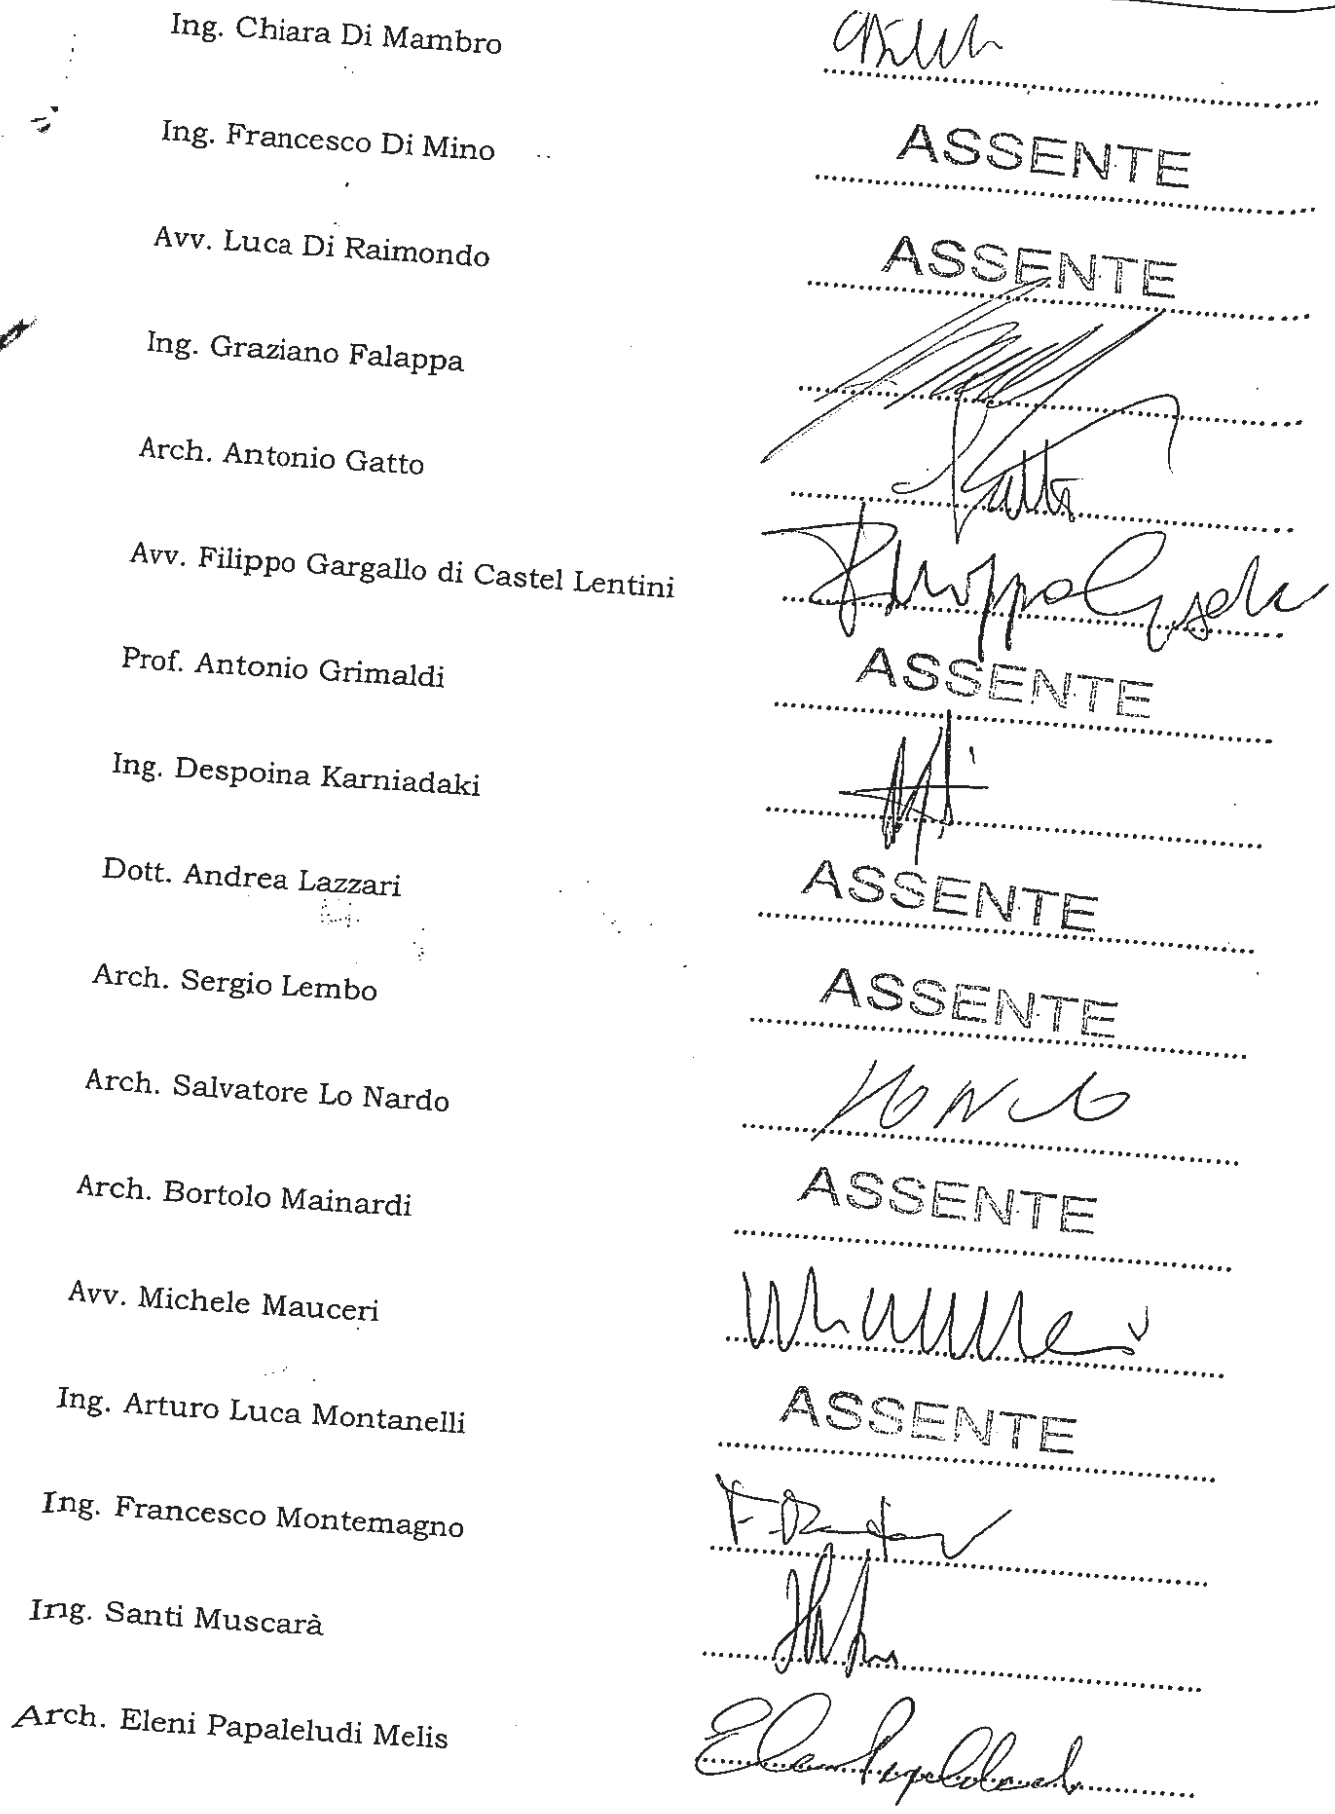 Ing. Chiara Di Mambro
Ing. Francesco Di Mino ASSENTE
Avv. Luca Di Raimondo ASSENTE
Ing. Graziano Falappa
Arch. Antonio Gatto Gatto
Avv. Filippo Gargallo di Castel Lentini Filippo Gargallo
Prof. Antonio Grimaldi ASSENTE
Ing. Despoina Karniadaki
Dott. Andrea Lazzari ASSENTE
Arch. Sergio Lembo ASSENTE
Arch. Salvatore Lo Nardo
Arch. Bortolo Mainardi ASSENTE
Avv. Michele Mauceri
Ing. Arturo Luca Montanelli ASSENTE
Ing. Francesco Montemagno
Ing. Santi Muscarà
Arch. Eleni Papaleludi Melis